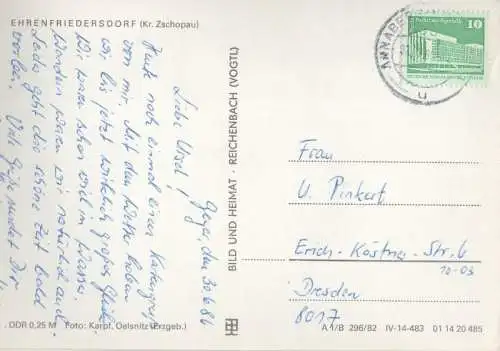 EHRENFRIEDERSDORF (Kr. Zschopau)
Geyer, den 30.6.86
Liebe Ursel!
Heute noch einmal einen Kartengruß
von mir. Mit dem Wetter haben
wir bis jetzt wirklich großes Glück.
Wir waren schon viel im Wasser.
Wandern waren wir natürlich auch.
Leider geht die schöne Zeit bald
vorbei. Viele Grüße sendet Dir
DDR 0,25 M Foto: Karpf, Oelsnitz (Erzgeb.)
BILD UND HEIMAT · REICHENBACH (VOGTL)
ANNABE
10
u
Frau
U. Pinkert
Erich-Kästner-Str. 6
10-03
Dresden
8017
A 1/B 296/82 IV-14-483 01 14 20 485